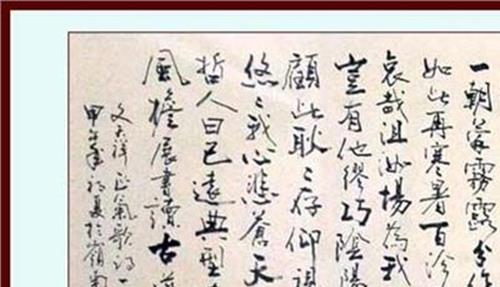 一朝蒙霧露分作
如此再寒暑百沴
哀哉沮洳場為我
豈有他繆巧陰陽
顧此耿〻存仰視
悠〻我心悲蒼天
哲人日已遠典型
風檐展書讀古道
文天祥正氣歌詩一
甲午年初夏於嶺南